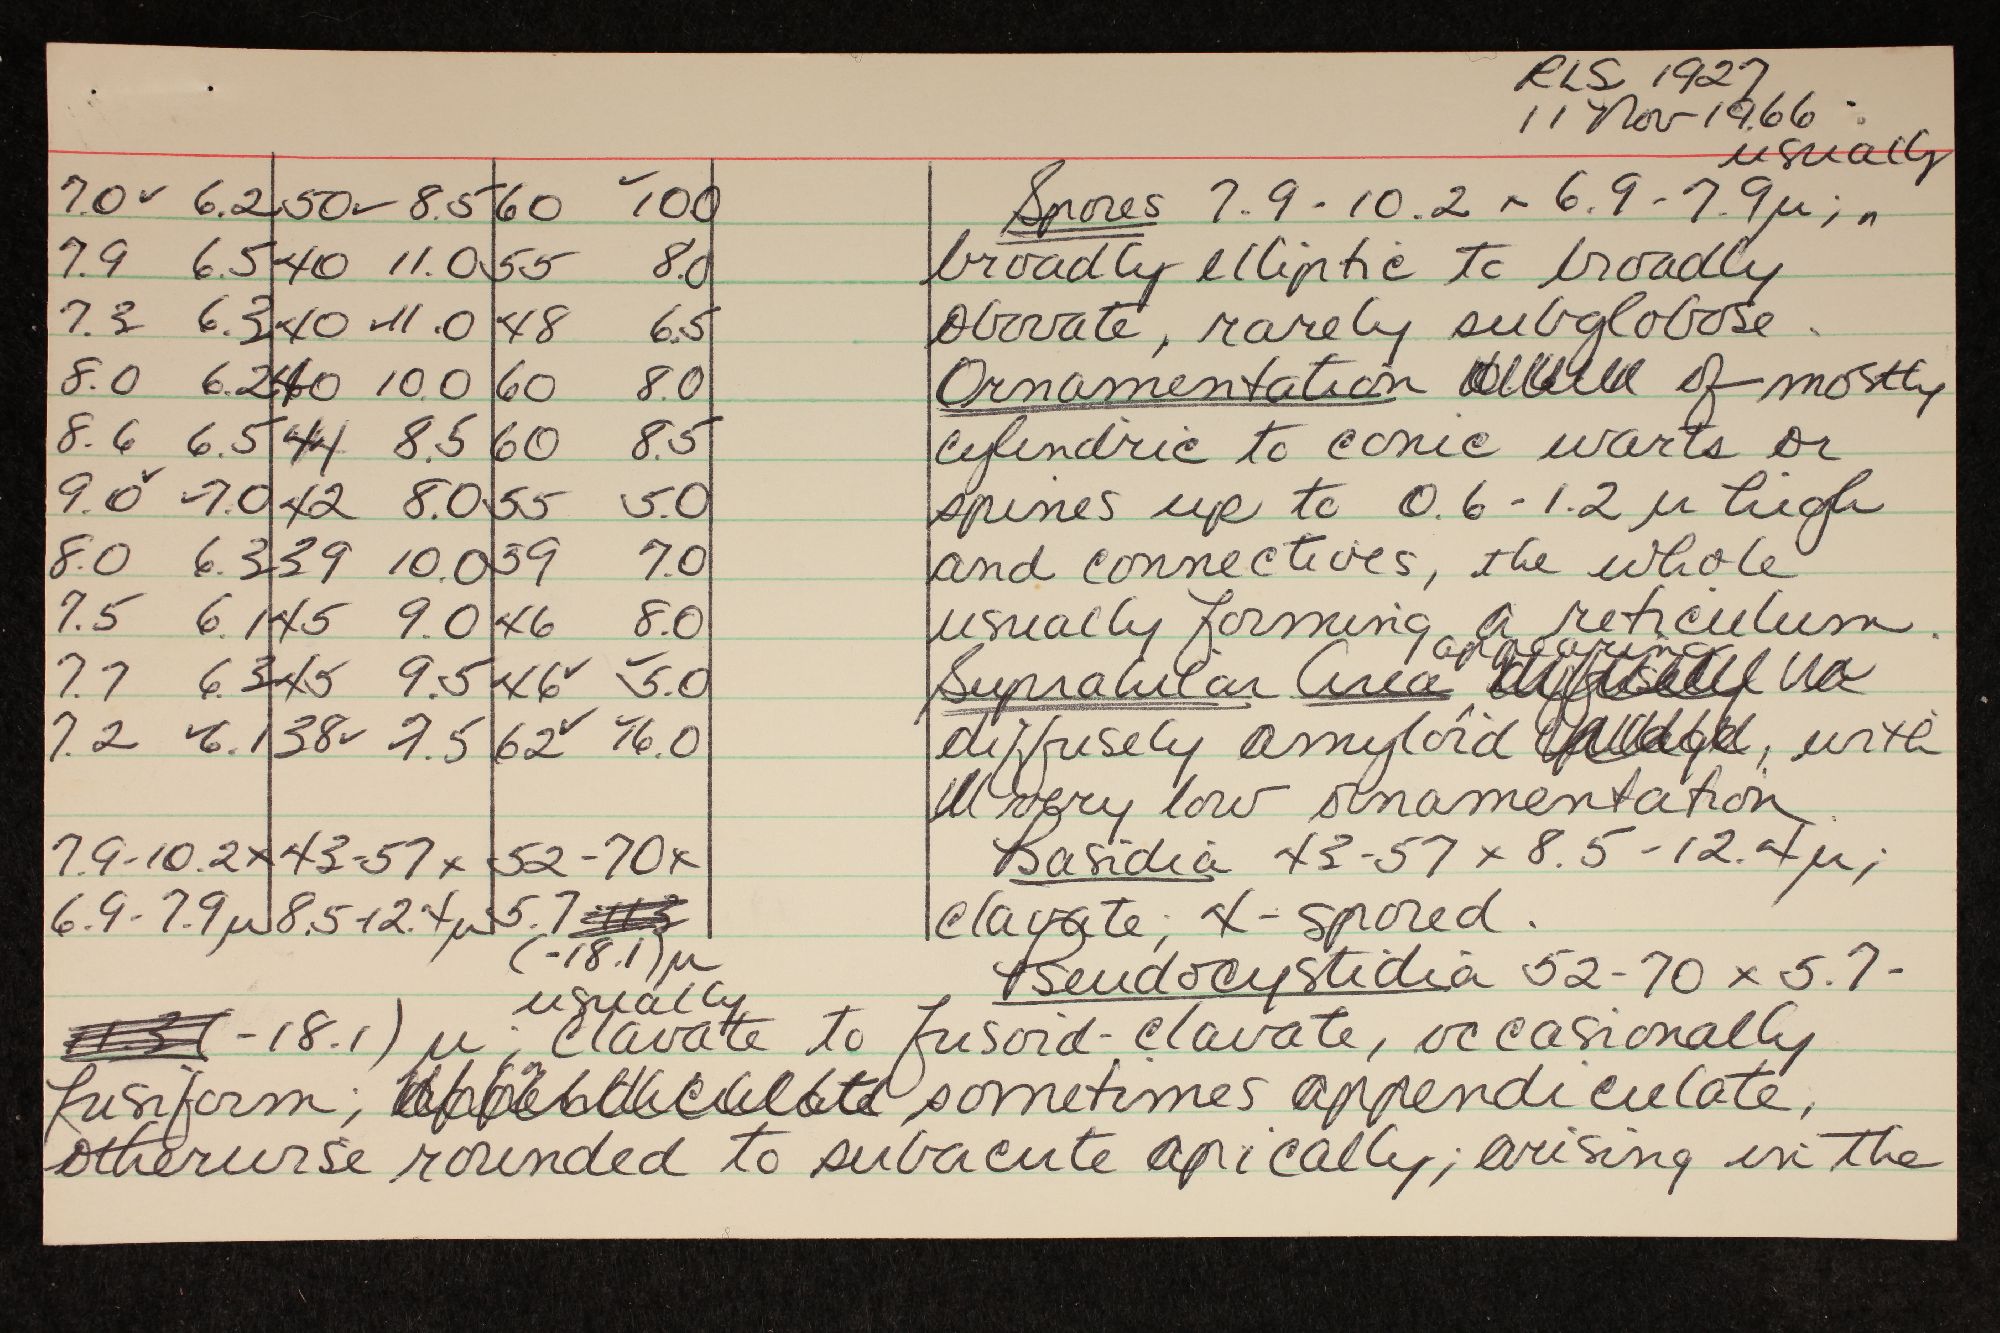 RLS 1927
11 Nov 1966
usually
7.0✓ 6.2 50✓ 8.5 60 ✓100
7.9 6.5 40 11.0 55 8.0
7.3 6.3 40 11.0 48 6.5
8.0 6.2 40 10.0 60 8.0
8.6 6.5 44 8.5 60 8.5
9.0✓ ✓7.0 42 8.0 55 5.0
8.0 6.3 39 10.0 59 7.0
7.5 6.1 45 9.0 46 8.0
7.7 6.3 45 9.5 46✓ ✓5.0
7.2 ✓6.1 38✓ 7.5 62✓ 16.0
7.9-10.2 x 43-57 x 52-70 x
6.9-7.9 µ 8.5-12.4 µ 5.7 11.3
(-18.1) µ
Spores 7.9-10.2 x 6.9-7.9 µ;
broadly elliptic to broadly
obovate, rarely subglobose.
Ornamentation of mostly
cylindric to conic warts or
spines up to 0.6-1.2 µ high
and connectives, the whole
usually forming a reticulum.
appearing
Suprahilar Area
diffusely amyloid, with
very low ornamentation.
Basidia 43-57 x 8.5-12.4 µ;
clavate; 4-spored.
Pseudocystidia 52-70 x 5.7-
usually
11.3 (-18.1) µ; clavate to fusoid-clavate, occasionally
fusiform; sometimes appendiculate,
otherwise rounded to subacute apically; arising in the